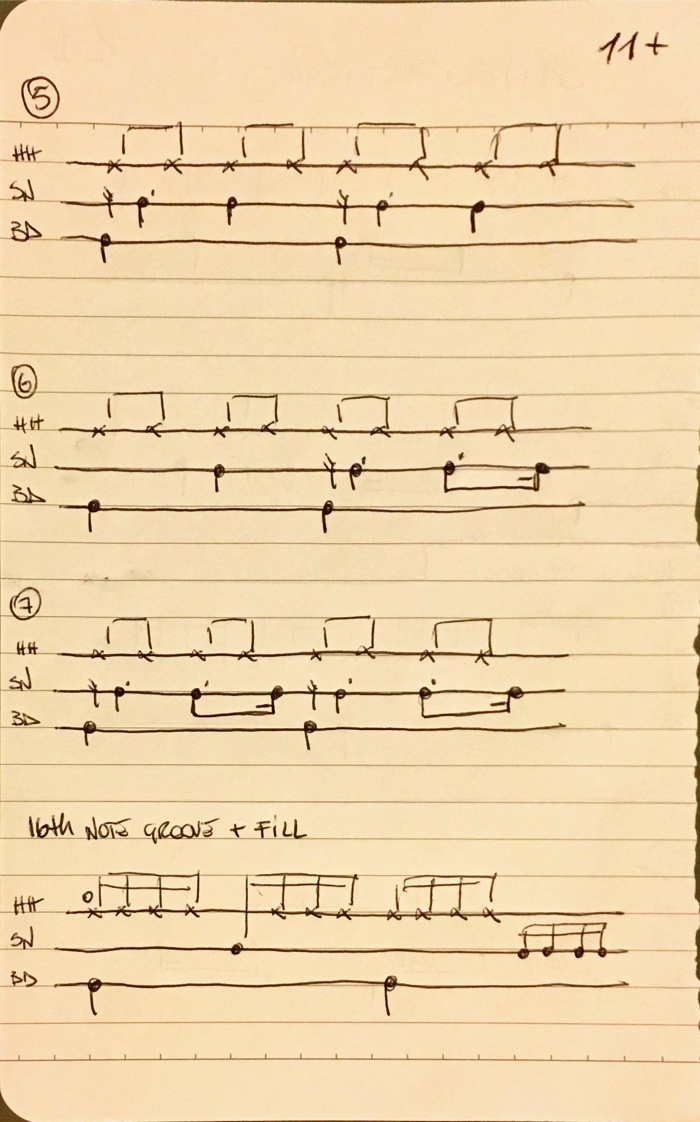 11+
5
HH
SN
BD
6
HH
SN
BD
7
HH
SN
BD
16th NOTE GROOVE + FILL
HH
SN
BD